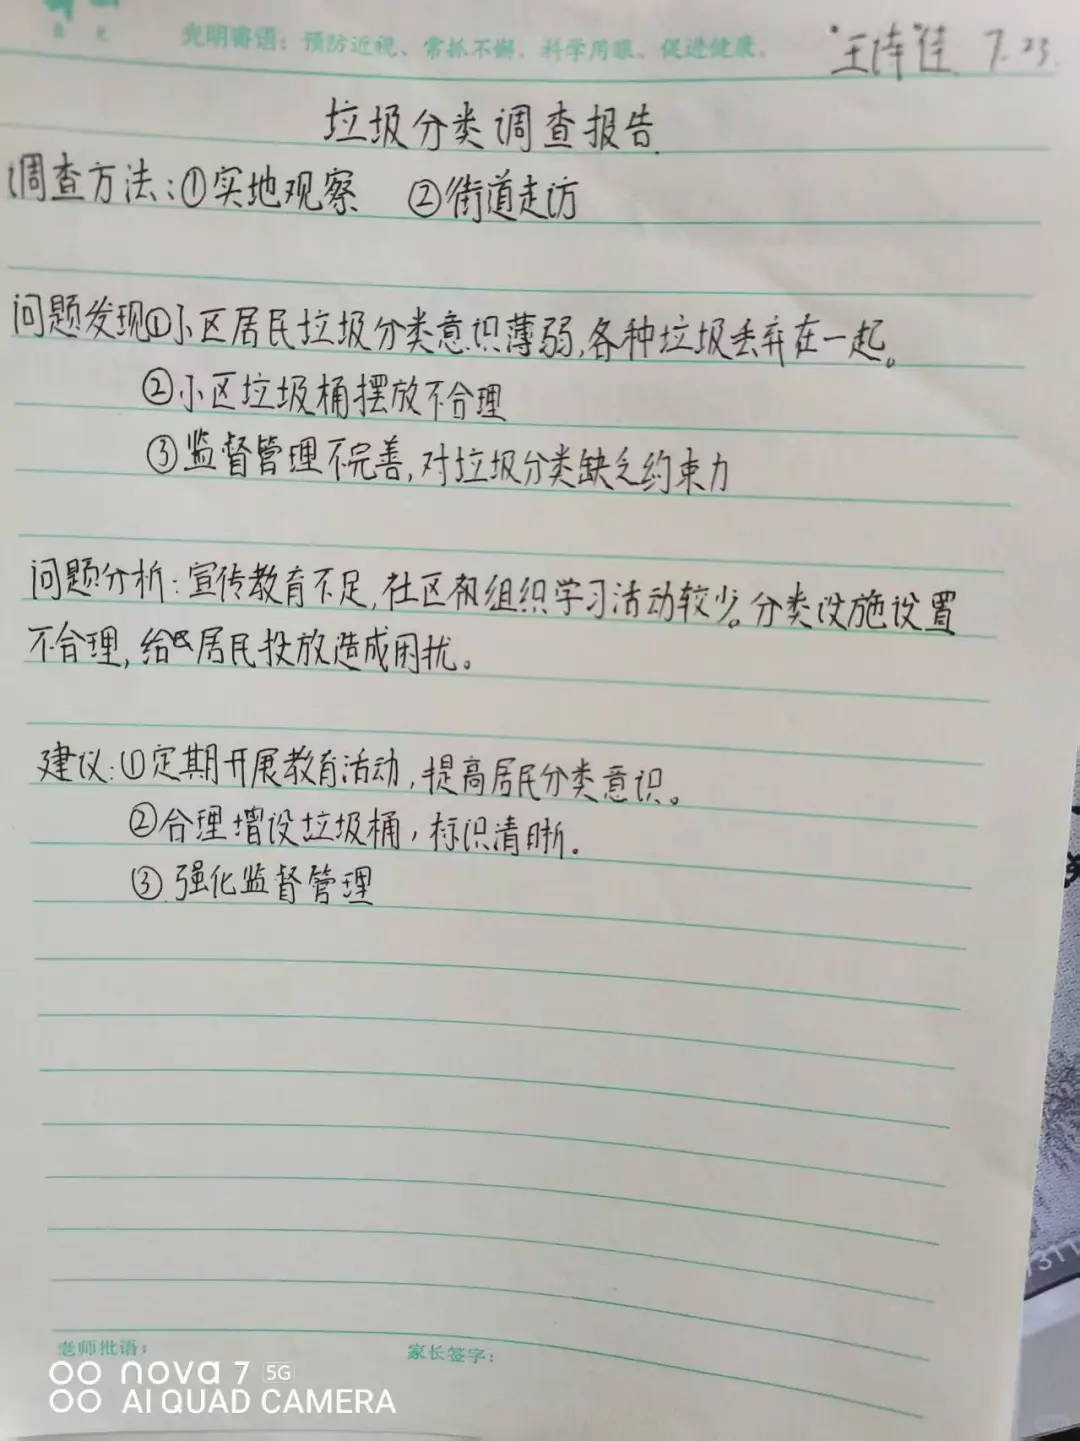 光明寄语：预防近视、常抓不懈、科学用眼、促进健康。
7.23.
垃圾分类调查报告
调查方法：①实地观察 ②街道走访
问题发现①小区居民垃圾分类意识薄弱,各种垃圾丢弃在一起。
②小区垃圾桶摆放不合理
③监督管理不完善,对垃圾分类缺乏约束力
问题分析：宣传教育不足,社区和组织学习活动较少。分类设施设置
不合理,给居民投放造成困扰。
建议：①定期开展教育活动,提高居民分类意识。
②合理增设垃圾桶,标识清晰。
③强化监督管理
老师批语：
家长签字：
nova 7 5G
AI QUAD CAMERA